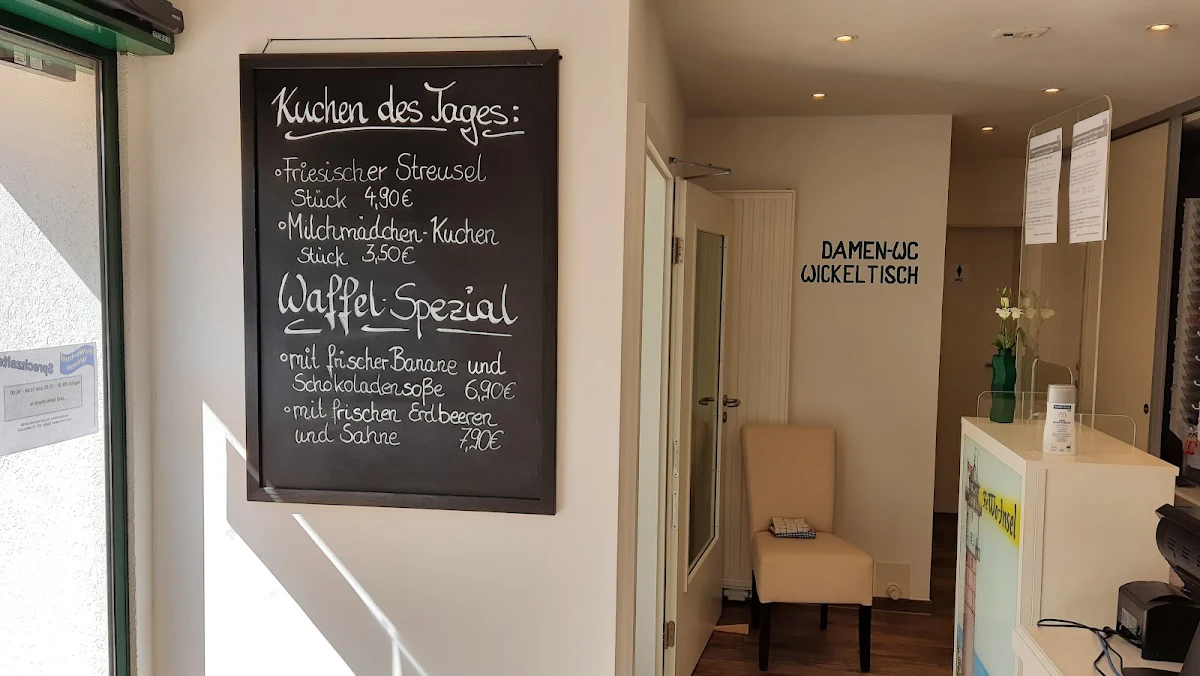 Kuchen des Tages:
°Friesischer Streusel
Stück 4,90€
°Milchmädchen-Kuchen
Stück 3,50€
Waffel-Spezial
°mit frischer Banane und
Schokoladensoße 6,90€
°mit frischen Erdbeeren
und Sahne 7,90€
DAMEN-WC
WICKELTISCH
FeWo-Insel